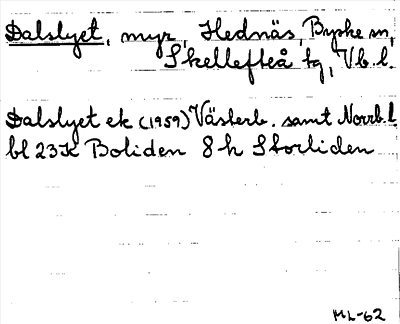 Dalslyet, myr, Hednäs, Byske sn,
Skellefteå tg, Vb. l.
Dalslyet ek (1959) Västerb. samt Norrb. l
bl 23K Boliden 8 h Storliden
ML-62